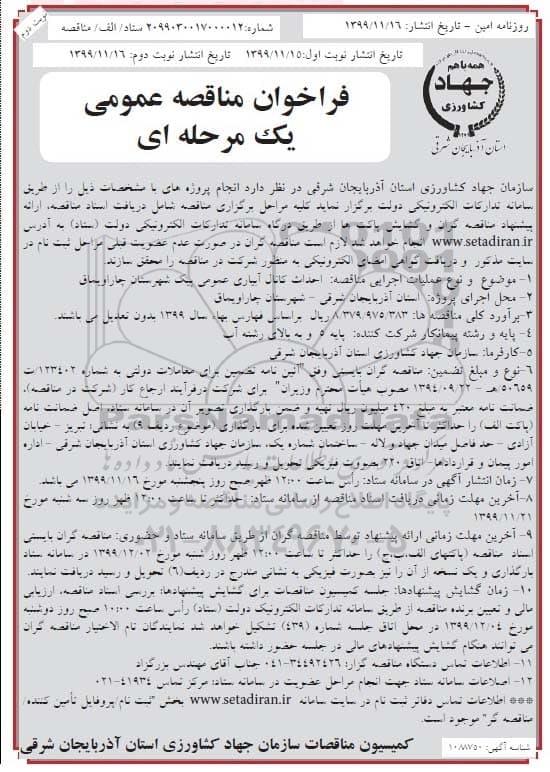 نوبت دوم
روزنامه امین - تاریخ انتشار: ۱۳۹۹/۱۱/۱۶
شماره: ۲۰۹۹۰۳۰۰۱۷۰۰۰۰۱۲ ستاد/ الف/ مناقصه
تاریخ انتشار نوبت اول: ۱۳۹۹/۱۱/۱۵ تاریخ انتشار نوبت دوم: ۱۳۹۹/۱۱/۱۶
همه با هم
جهاد
کشاورزی
استان آذربایجان شرقی
فراخوان مناقصه عمومی
یک مرحله ای
سازمان جهاد کشاورزی استان آذربایجان شرقی در نظر دارد انجام پروژه های با مشخصات ذیل را از طریق
سامانه تدارکات الکترونیکی دولت برگزار نماید کلیه مراحل برگزاری مناقصه شامل دریافت اسناد مناقصه، ارائه
پیشنهاد مناقصه گران و گشایش پاکت‌ها از طریق درگاه سامانه تدارکات الکترونیکی دولت (ستاد) به آدرس
www.setadiran.ir انجام خواهد شد لازم است مناقصه گران در صورت عدم عضویت قبلی مراحل ثبت نام در
سایت مذکور و دریافت گواهی امضای الکترونیکی به منظور شرکت در مناقصه را محقق سازند.
۱- موضوع و نوع عملیات اجرایی مناقصه: احداث کانال آبیاری عمومی پیک شهرستان چاراویماق
۲- محل اجرای پروژه: استان آذربایجان شرقی - شهرستان چاراویماق
۳-برآورد کلی مناقصه ها: ۸/۳۷۹/۹۷۵/۳۸۳ ریال براساس فهارس بهاء سال ۱۳۹۹ بدون تعدیل می باشند.
۴- پایه و رشته پیمانکار شرکت کننده: پایه ۵ و به بالای رشته آب
۵-کارفرما: سازمان جهاد کشاورزی استان آذربایجان شرقی
۶-نوع و مبلغ تضمین: مناقصه گران بایستی وفق "آئین نامه تضمین برای معاملات دولتی به شماره ۱۲۳۴۰۲/ت
۵۰۶۵۹/هـ - ۱۳۹۴/۰۹/۲۲ مصوب هیأت محترم وزیران" برای شرکت درفرآیند ارجاع کار (شرکت در مناقصه)،
ضمانت نامه معتبر به مبلغ ۴۲۰ میلیون ریال تهیه و ضمن بارگذاری تصویر آن در سامانه ستاد، اصل ضمانت نامه
(پاکت الف) را حداکثر تا آخرین مهلت زمانی تعیین شده برای بارگذاری (مطابق ردیف ۹)، به نشانی: تبریز - خیابان
آزادی - حد فاصل میدان جهاد و لاله - ساختمان شماره یک، سازمان جهاد کشاورزی استان آذربایجان شرقی - اداره
امور پیمان و قراردادها- اتاق ۲۲۰ بصورت فیزیکی تحویل و رسید دریافت نمایند.
۷- زمان انتشار آگهی در سامانه ستاد: رأس ساعت ۱۲:۰۰ ظهر صبح روز پنجشنبه مورخ ۱۳۹۹/۱۱/۱۶ می باشد.
۸-آخرین مهلت زمانی دریافت اسناد مناقصه از سامانه ستاد: حداکثر تا ساعت ۱۲:۰۰ ظهر روز سه شنبه مورخ
۱۳۹۹/۱۱/۲۱
۹- آخرین مهلت زمانی ارائه پیشنهاد توسط مناقصه گران از طریق سامانه ستاد و حضوری: مناقصه گران بایستی
اسناد مناقصه (پاکتهای الف،ب،ج) را حداکثر تا ساعت ۱۲:۰۰ ظهر روز شنبه مورخ ۱۳۹۹/۱۲/۰۲ در سامانه ستاد
بارگذاری و یک نسخه از آن را نیز بصورت فیزیکی به نشانی مندرج در ردیف(۶) تحویل و رسید دریافت نمایند.
۱۰- زمان گشایش پیشنهادها: جلسه کمیسیون مناقصات برای گشایش پیشنهادها: بررسی اسناد مناقصه، ارزیابی
مالی و تعیین برنده مناقصه از طریق سامانه تدارکات الکترونیک دولت (ستاد) رأس ساعت ۱۰:۰۰ صبح روز دوشنبه
مورخ ۱۳۹۹/۱۲/۰۴ در محل اتاق جلسه شماره (۴۳۹) تشکیل خواهد شد نمایندگان تام الاختیار مناقصه گران
می توانند هنگام گشایش پیشنهادهای مالی در جلسه حضور داشته باشند.
۱۱- اطلاعات تماس دستگاه مناقصه گزار: ۳۴۴۹۲۴۲۶-۰۴۱ جناب آقای مهندس بزرگزاد
۱۲- اطلاعات سامانه ستاد جهت انجام مراحل عضویت در سامانه ستاد: مرکز تماس ۴۱۹۳۴-۰۲۱
*** اطلاعات تماس دفاتر ثبت نام در سایت سامانه www.setadiran.ir بخش "ثبت نام/پروفایل تأمین کننده/
مناقصه گر" موجود است.
کمیسیون مناقصات سازمان جهاد کشاورزی استان آذربایجان شرقی
شناسه آگهی: ۱۰۸۸۷۵۰
ParsNamadData
پایگاه اطلاع رسانی مناقصه و مزایده
۰۲۱-۸۸۳۴۹۶۷۰-۵